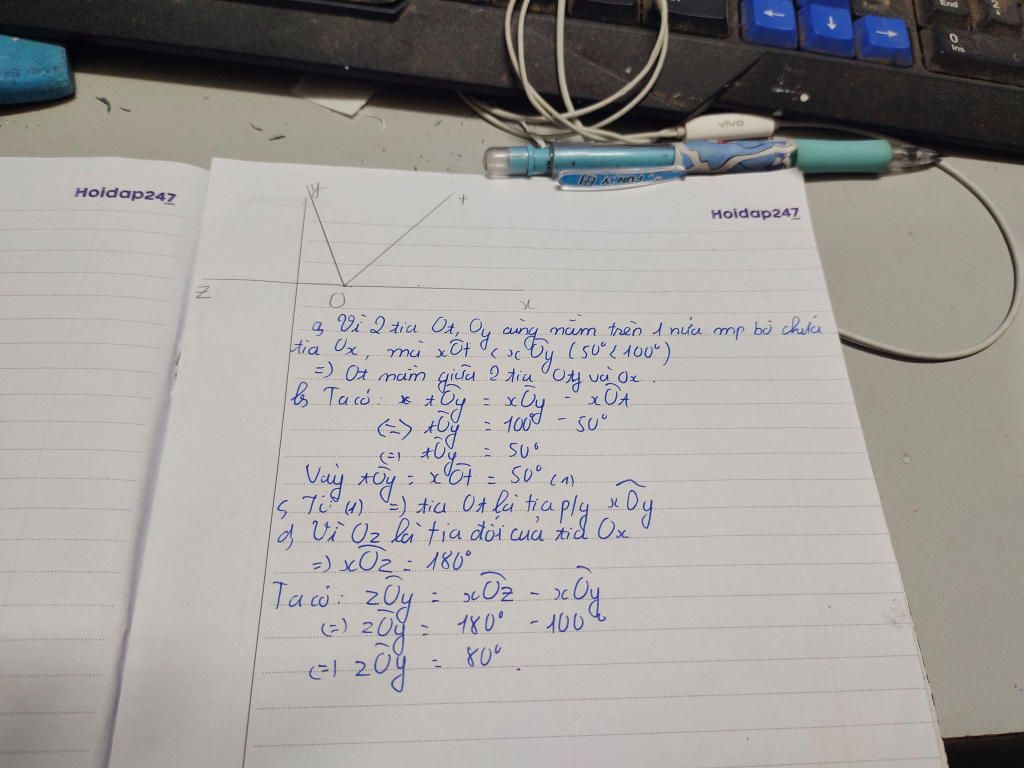 End
0
Ins
vivo
Hoidap247
Hoidap247
y
t
z
O
x
a, Vì 2 tia Ot, Oy cùng nằm trên 1 nửa mp bờ chứa
tia Ox, mà xÔt < xÔy (50° < 100°)
=) Ot nằm giữa 2 tia Oty và Ox.
b, Ta có: x tÔy = xÔy - xÔt
(=) tÔy = 100° - 50°
(=) tÔy = 50°
Vậy tÔy = xÔt = 50° (1)
c, Từ (1) =) tia Ot là tia p/g xÔy
d, Vì Oz là tia đối của tia Ox
=) xÔz = 180°
Ta có: zÔy = xÔz - xÔy
(=) zÔy = 180° - 100°
(=) zÔy = 80°.